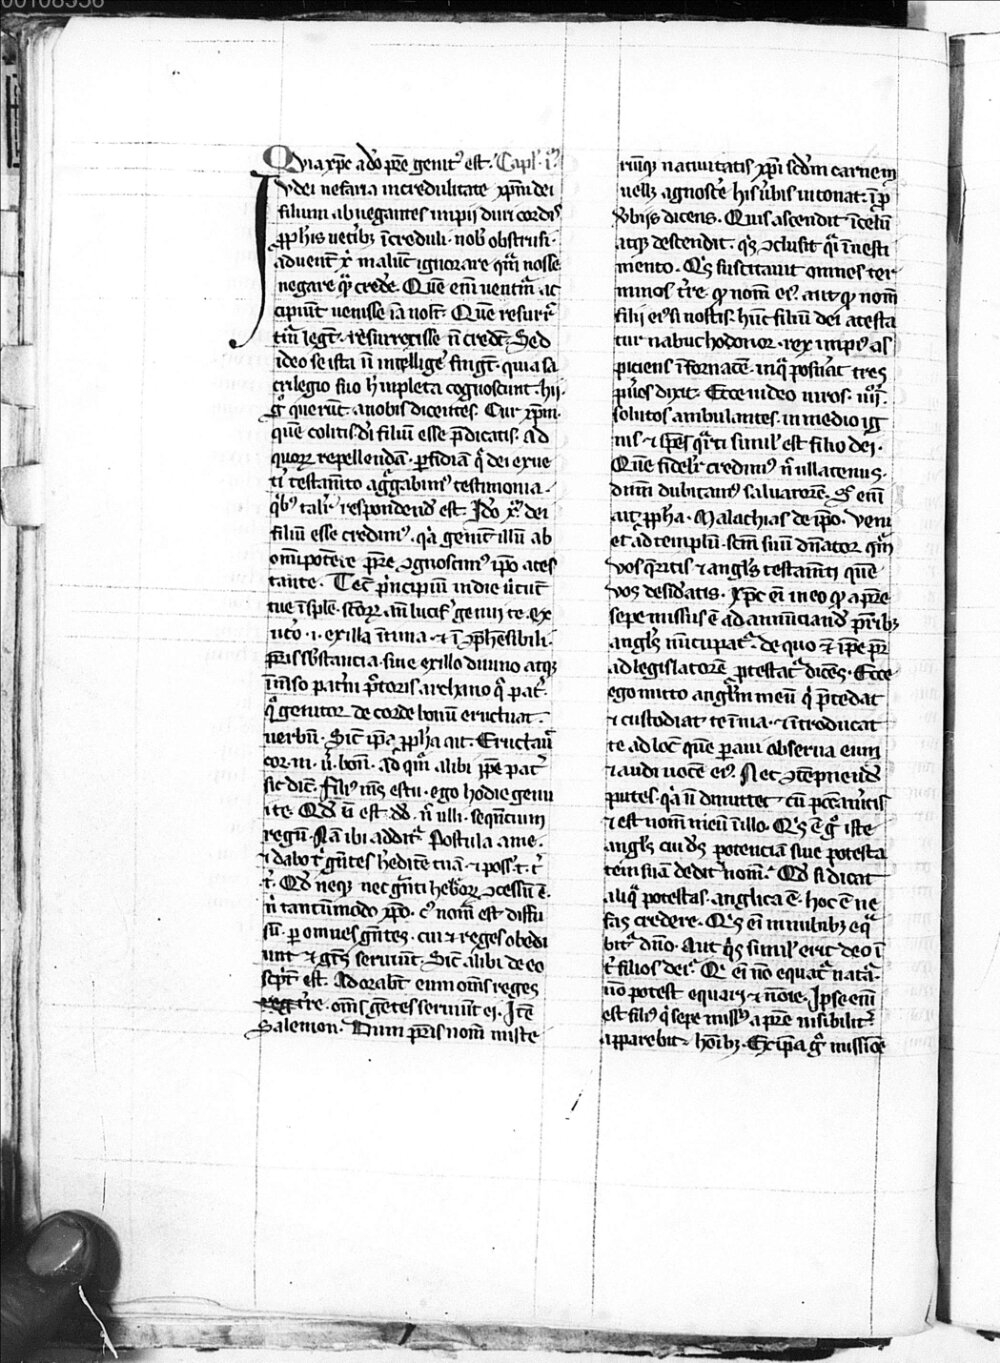 00108358
Quia xp̄c a dō pr̄e genitꝰ est. Capl̄. i.
Iudei nefaria incredulitate xp̄m dei
filium abnegantes impii duri cordis
ꝓphis uetibꝫ īcreduli nob̄ obstrusi
aduent̄ xͥ malūt ignorare qm̄ nosse
negare qͣ̄ crede. Quē em̄ ventur̄ ac
cipiūt uenisse iā nolt̄. Quē resurr̄
tur̄ legt̄. resurrexisse n̄ credt̄. Sed
ideo se ista n̄ intellige fingt̄. quia sa
crilegio suo h̓ impleta cognoscunt. hii
gͦ querūt a nobis dicentes. Cur xp̄m
quē colitis di filiū esse p̄dicatis. ad
quoꝝ repellendā ꝑfidiā qͥ dei ex ue
ti testam̄to aggͣgabimꝰ testimonia.
qͥbꝰ talit̓ respondendū est. Ido xͫ dei
filiū esse credimꝰ. qͥa genuit illū ab
omīpotēte pr̄e. ꝯgnoscimꝰ ip̄o ates
tante. Tecū pͥncipiū in die ūtut̄
tue ī sple. sc̄oꝝ. an̄ lucif̓ genui te. ex
ut̓o .i. ex illa ītima ⁊ ī ꝯp̄hēsibili
pr̄is sb̓stancia. siue ex illo diuino atqꝫ
īmēso pat̓ni pͨtoris archano qͦ pat̓
qͣ genitor de corde bonū eructuat
uerbū. Sic̄ ip̄e ꝓpha ait. Eructaū
cor. m̄. ū. bon̄. ad qm̄ alibi ip̄e pat̓
sic dic̄. Filiꝰ mꝰ es tu. ego hodie genui
te. Qd̓ ū est. dd̓. n̄ ulli. sequēcium
regū. Nā ibi additͬ Postula a me.
⁊ dabo tͥ gn̄tes h̓editē tuā. ⁊ poss̓. t. t̓
t̓. Qd̓ neqꝫ nec gn̄ti heb̓oꝝ ꝯcessū ē.
n̄ tantūmodo xp̄o. cꝰ nom̄ est diffu
sū. ꝑ omnes gn̄tes. cui ⁊ reges obedi
unt ⁊ gn̄s seruiūt. Sic̄ alibi de eo
sc̄ptū est. Adorabt̄ eum om̄s reges
t̓re. om̄s gētes seruiūt ei. Itē
Salemon. Dum pr̄is nom̄ miste
riūqꝫ natiuitatis xp̄i scd̓m carnem
uellꝫ agnosce̓ his ūbis intonat. ī ꝓ
ūbiis dicens. Quis ascendit ī celū
atqꝫ descendit. qͥs ꝯclusit qͣi ī uesti
mento. Qͥs suscitauit omnes ter
minos t̓re. qͦ nom̄ eiꝰ. aut qͦ nom̄
filii eiꝰ si nostis. hūc filiū dei atesta
tur nabuchodonor. rex impiꝰ as
piciens ī fornacē. in qͣ posuat̓ tres
pūos dixit. Ecce uideo uiros. iiiiͦͬ.
solutos ambulantes. in medio ig
nis. ⁊ spēs qͣrti simil̓ est filio dei.
Quē fidelit̓ credimꝰ n̄ ullatenus
dum dubitamꝰ saluatorē. S; eni
ait ꝓpha. Malachias de ip̄o. Veni
et ad templū. scm̄ suū dn̄ator quē
vos q̄ritis ⁊ angls̓ testam̄ti quē
vos desid̓atis. Xp̄c ei in eo qͦ a pr̄e
sepe missus ē ad annūciandū prͥbꝫ
angls̓ nūcupatͬ. de quo ⁊ ip̄e pr̄
ad legislatorē ꝓtestatͬ dices̄. Ecce
ego mitto anglm̄ meū qͥ p̄cedat
⁊ custodiat te ī uia. ⁊ introducat
te ad loc̄ quē paui obserua eum
⁊ audi uocē eiꝰ. Nec ꝯtēpnendū
putes. qͥa n̄ dimittet cū peccaūtis
⁊ est nom̄ meū ī illo. Qͥs ē gͦ iste
angls̓ cui dꝰ potenciam siue potesta
tem suā dedit ⁊ nom̄. Qd̓ si dicat
aliqͣ potestas anglica ē. hoc ē ne
fas credere. Qͥs ei in nubibꝫ eqͣ
bitͬ dn̄o. Aut qͥs simil̓ erit deo ī
t̓ filios dei. Qͥ ei nō equatͬ natͣ.
nō potest equari ⁊ noīe. Ipse eni
est filiꝰ qͥ sepe missꝰ a pr̄e uisibilit̓
apparebit hoībꝫ. Ex ip̄a gͦ missiōe